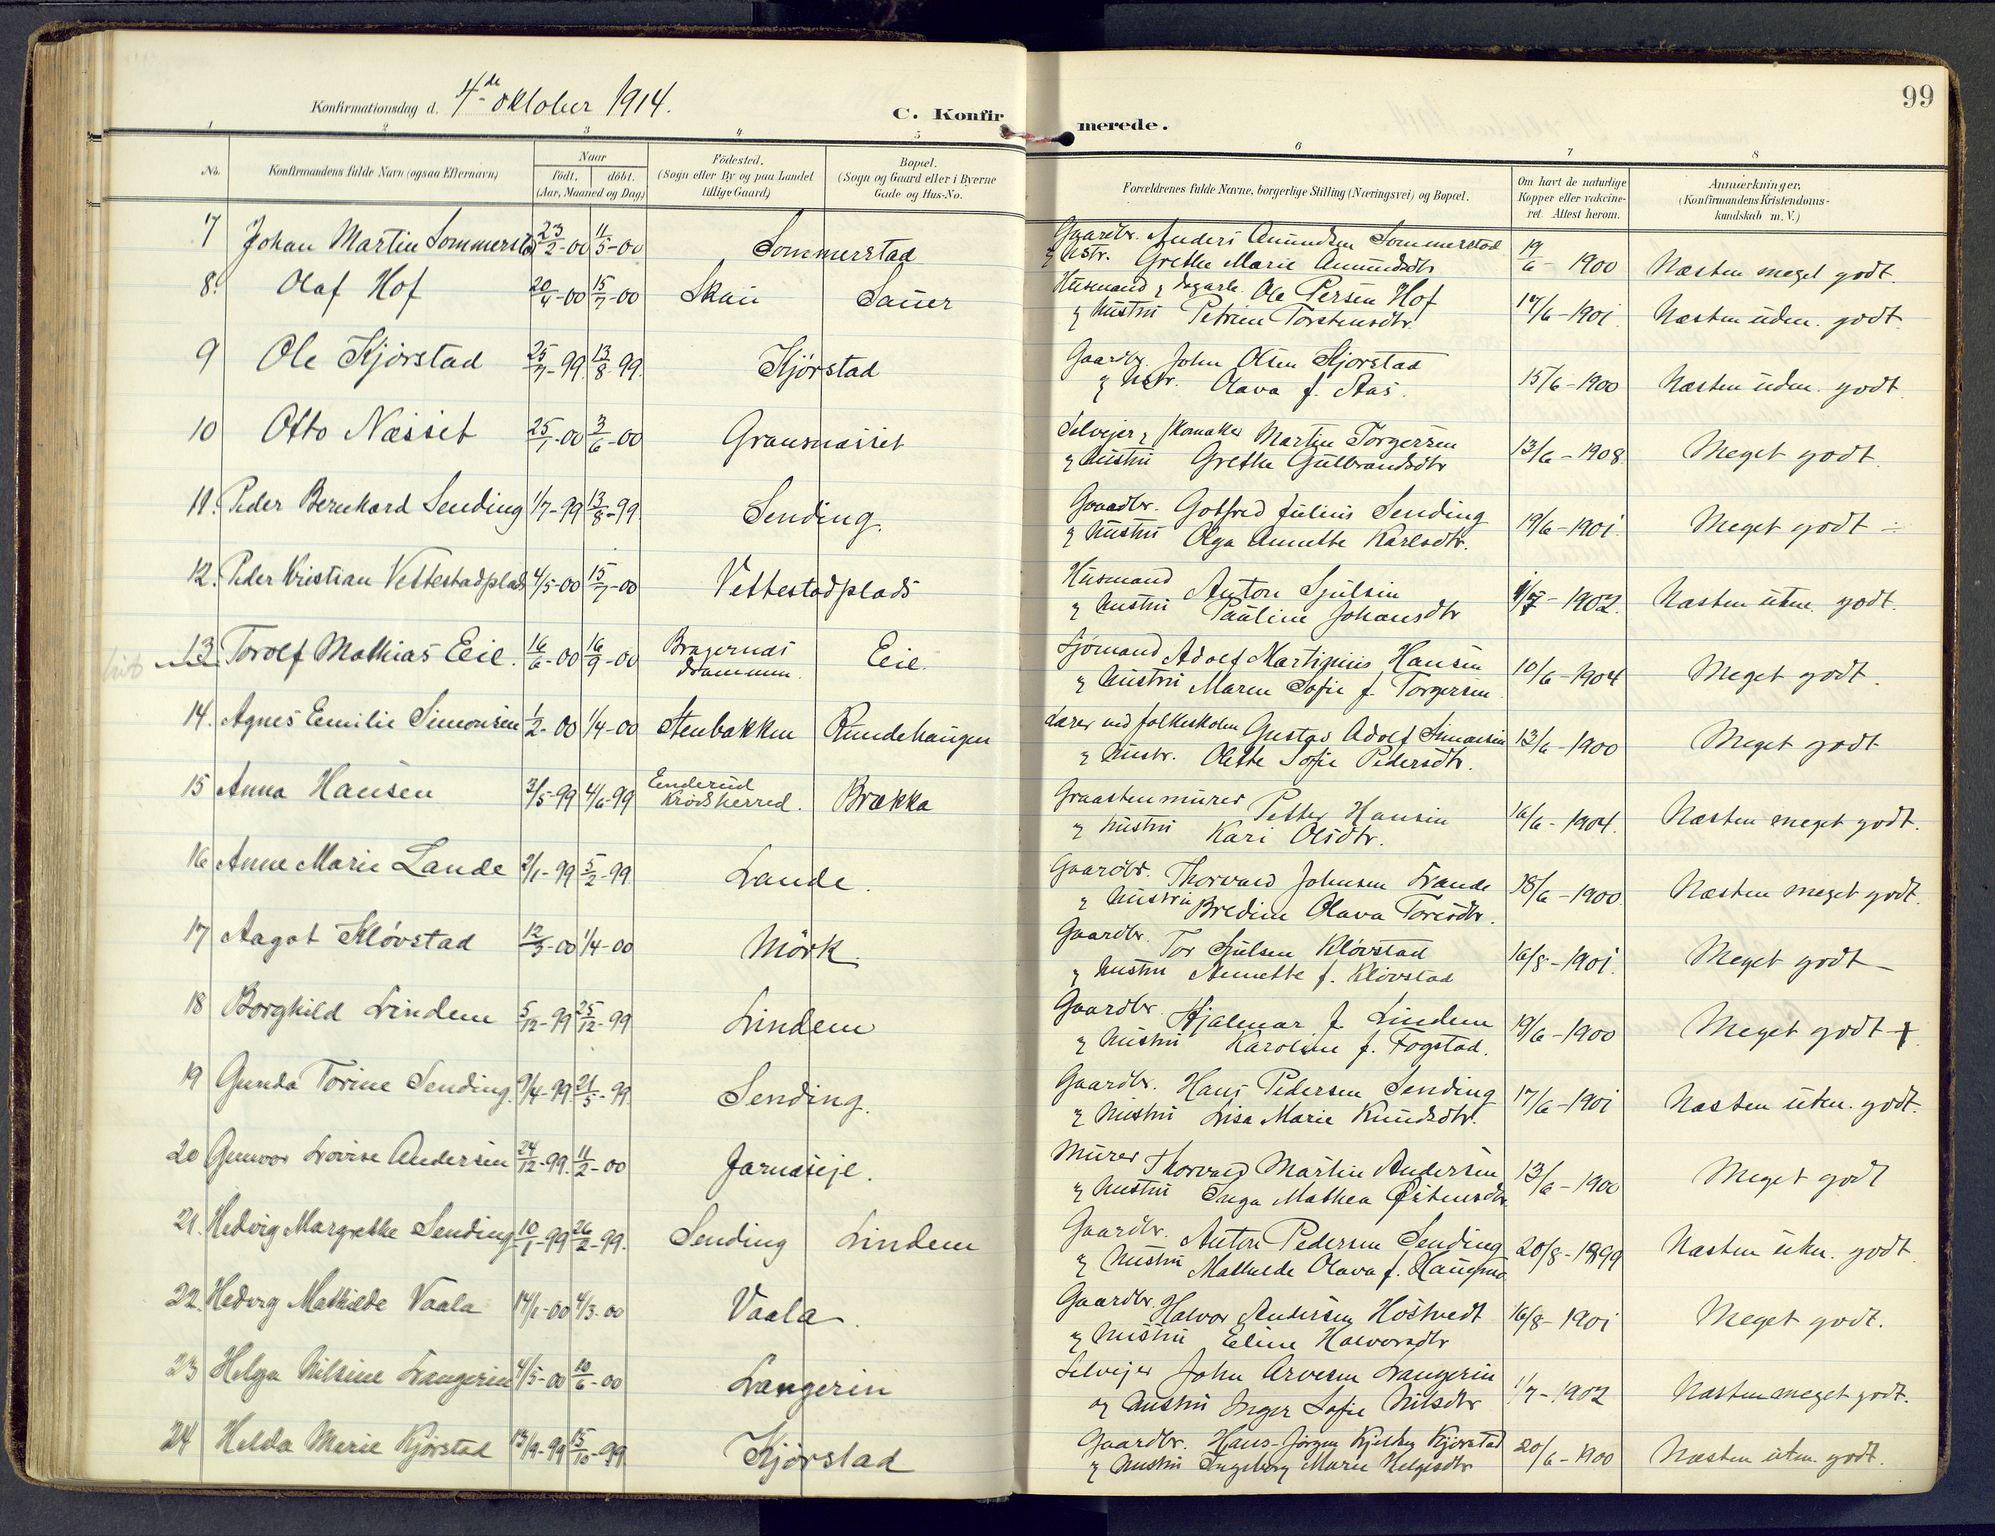 99
Konfirmationsdag d. 4de oktober 1914.
C. Konfir merede.
1 2 3 4 5 6 7 8
No. Konfirmandens fulde Navn (ogsaa Efternavn)
Naar
Födt. döbt.
(Aar, Maaned og Dag)
Födested.
(Sogn eller By og paa Landet
tillige Gaard)
Bopæl.
(Sogn og Gaard eller i Byerne
Gade og Hus-No.
Forældrenes fulde Navne, borgerlige Stilling (Næringsvei) og Bopæl.
Om havt de naturlige
Kopper eller vakcine-
ret. Attest herom.
Anmærkninger,
(Konfirmandens Kristendoms-
kundskab m. V.)
7 Johan Martin Sommerstad 23/2-00 11/5-00 Sommerstad Gaardbr. Anders Amundsen Sommerstad
& hstr. Grethe Marie Amundsdtr 19/6-1900 Næsten meget godt.
8. Olaf Hof 20/4-00 15/7-00 Skau Sauer Husmand & dagarb. Ole Persen Hof
& hustru Petrine Torstensdtr. 17/6-1901 Næsten udm. godt.
9 Ole Kjørstad 25/7-99. 13/8-99. Kjørstad Gaardbr. John Olsen Kjørstad
& hstr. Olava f. Aas. 15/6-1900 Næsten udm. godt
10 Otto Næsset 25/1-00 3/6-00 Gransnæsset Selvejer & skomaker Martin Torgersen
& hustru Grethe Gulbrandsdtr 13/6-1908 Meget godt.
11. Peder Bernhard Sending 1/7-99 13/8-99. Sending. Gaardbr. Gotfred Julius Sending
& hustru Olga Annette Karlsdtr. 19/6-1901 Meget godt -
12. Peder Kristian Vettestadplads 4/5-00 15/7-00 Vettestadplads Husmand Anton Sjulsen
& hustru Pauline Johansdtr 1/7-1902. Næsten utm. godt.
13. Torolf Mathias Eeie. 16/6-00 16/9-00 Bragernæs
Drammen. Eeie. Sjømand Adolf Martinius Hansen
& hustru Maren Sofie f. Torgersen. 10/6-1904 Meget godt.
14. Agnes Emilie Simonsen 1/2-00 1/4-00 Stenbakken Rundehaugen Lærer ved folkeskolen Gustav Adolf Simonsen
& hustr. Olette Sofie Pedersdtr. 13/6-1900 Meget godt
15 Anna Hansen 3/5-99 4/6-99 Enderud
Krødsherred. Brækka Graastensmurer Petter Hansen
& hustru Kari Olsdtr. 16/6-1904. Næsten meget godt.
16 Anne Marie Lande 2/1-99 5/2-99. Lande. Gaardbr. Thorvald Johnsen Lande
& hustru Bredine Olava Toresdtr. 18/6-1900. Næsten meget godt.
17 Aagot Kløvstad 12/3-00 1/4-00 Mörk. Gaardbr. Tor Sjulsen Kløvstad
& hustru Annette f. Kløvstad 16/8-1901. Meget godt -
18 Borghild Lindem 5/12-99 25/12-99 Lindem Gaardbr. Hjalmar f. Lindem
& hustru Karoline f. Fogstad. 19/6-1900 Meget godt +
19 Gunda Torine Sending. 9/4-99. 21/5-99. Sending. Gaardbr. Hans Pedersen Sending
& hustru Lisa Marie Knudsdtr. 17/6-1901 Næsten utm. godt.
20 Gunvor Lovise Andersen 24/12-99. 11/2-00 Jarnæseje. Murer Thorvald Martin Andersen
& hustru Inga Mathea Østensdtr 13/6-1900 Meget godt
21. Hedvig Margrethe Sending 10/1-99 26/2-99. Sending Lindem Gaardbr. Anton Pedersen Sending
& hustru Mathilde Olava f. 20/8-1899 Næsten utm. godt
22. Hedvig Mathilde Vaala 14/1-00 4/3-00 Vaala. Gaardbr. Halvor Andersen Hostvedt
& hustru Eline Halvorsdtr 16/8-1901 Meget godt.
23 Helga Nilsine Langerin 4/5-00 10/6-00 Langerin Selvejer John Arvesen Langerin
og hustru Inger Sofie Nilsdtr 1/7-1902 Næsten meget godt.
24 Helda Marie Kjørstad 13/9-99 15/10-99. Kjørstad Gaardbr. Hans Jörgen Kjørstad
& hustru Ingeborg Marie Helgesdtr 20/6-1900 Næsten utm. godt.